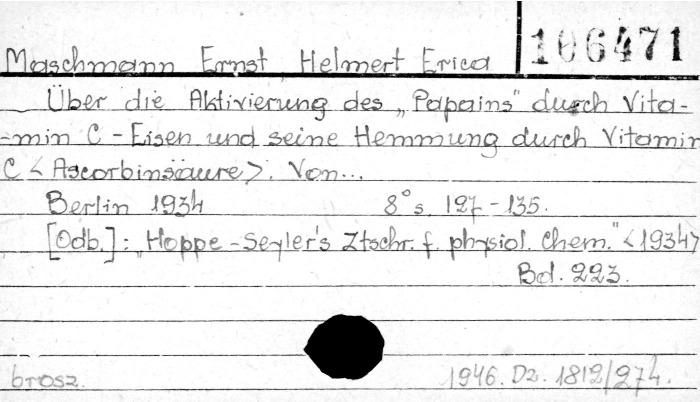 Maschmann Ernst, Helmert Erica
106471
Über die Aktivierung des „Papains" durch Vita-
-min C - Eisen und seine Hemmung durch Vitamin
C < Ascorbinsäure >. Von...
Berlin 1934 8° s. 127 - 135.
[Odb.]: „Hoppe - Seyler's Ztschr. f. physiol. Chem." <1934>
Bd. 223.
brosz. 1946. Dz. 1812/274.